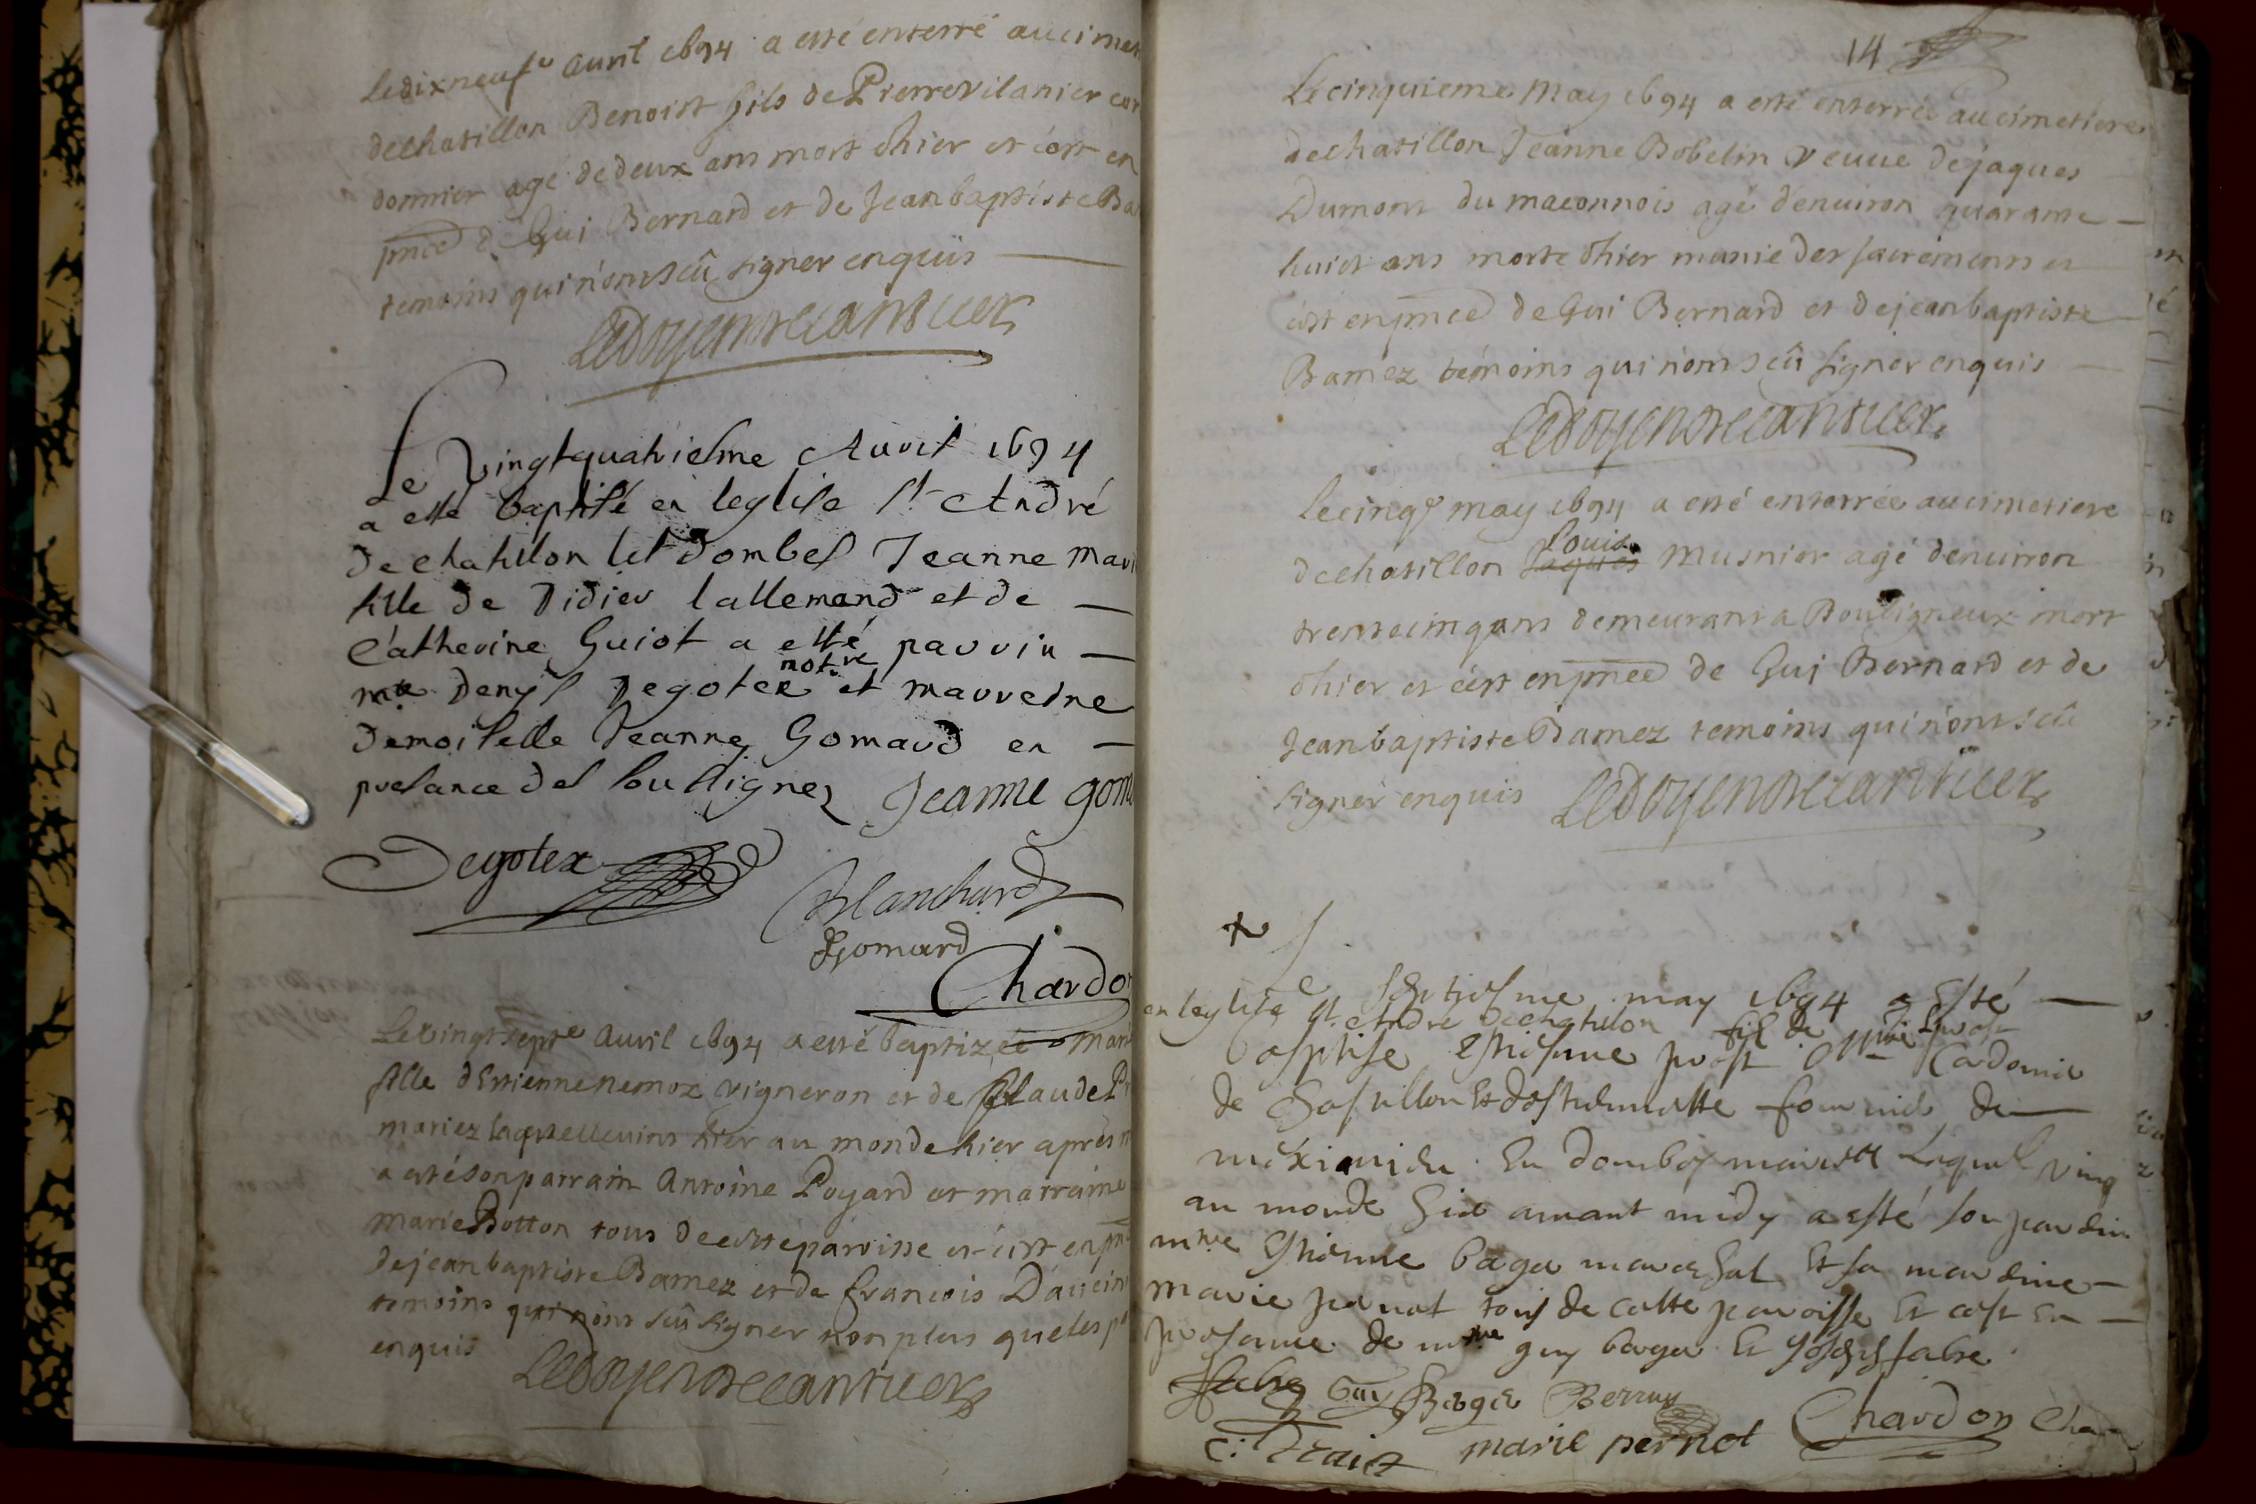 Le dixneufe auril 1694 a esté enterré au cimet
de chatillon Benoist fils de Pierre vilanier cor
donnier agé de deux ans mort hier et c'est en
pnce de Gui Bernard et de Jean baptiste Ba
temoins qui n'ont sceû signer enquis
Le vingtquatriesme Auril 1694
a esté baptisé en leglise St André
de chatillon les dombes Jeanne Mari
fille de Didier lallemand et de
Catherine Guiot a esté parrin
me Denys Degotex notre et marreine
Demoiselle Jeanne Gomard en
presance des soussignez Jeanne gom
Degotex
Blanchard
Gomard
Chardon
Le vingt septe auril 1694 a esté baptizée Mari
fille d'Estienne nemoz vigneron et de Claude P
mariez laquelle vint hier au monde hier apres m
a esté son parrain Antoine Poyard et marraine
marie Botton tous de cette paroisse et c'est en pn
de jean baptiste Bamez et de francois
temoins qui n'ont sceû signer non plus que les p
enquis
14
Le cinquieme May 1694 a esté enterrée au cimetiere
de chatillon Jeanne Bobelin veuue de jaques
Dumont du maconnois agé d'enuiron quarante
huict ans morte hier munie des sacrements et
c'est en pnce de Gui Bernard et de jean baptiste
Bamez temoins qui n'ont sceû signer enquis
Le cinqe may 1694 a esté enterrée au cimetiere
de chatillon Louis Jaques Musnier agé d'enuiron
trente cinq ans demeurant a Bouligneux mort
hier et c'est en pnce de Gui Bernard et de
Jean baptiste Bamez temoins qui n'ont sceû
signer enquis
Le septiesme may 1694 a esté
en leglise St André de chatillon
baptise Estienne prost fil de
de Chastillon et
meximieu En dombes mariés Lequel vint
au monde hier auant midy a esté son pardin
mtre Estienne bager marechal Et sa mardine
Marie pernot tous de cette paroisse Et cest En
presance de mtre guy bager Et Joseph fabre
fabre Guy Bager
marie pernot Chardon